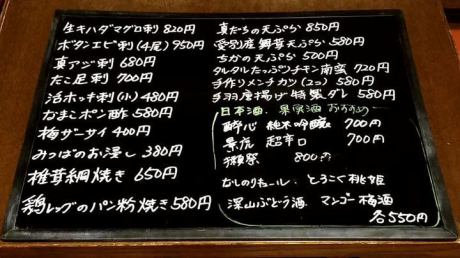 生キハダマグロ刺 820円
ボタンエビ刺(4尾) 950円
真アジ刺 680円
たこ足刺 700円
活ホッキ刺(小) 480円
なまこポン酢 580円
梅ザーサイ 400円
みつばのお浸し 380円
椎茸網焼き 650円
鶏レッグのパン粉焼き 580円
真たちの天ぷら 850円
愛別産 舞茸天ぷら 580円
ちかの天ぷら 500円
タルタルたっぷりチキン南蛮 720円
手作りメンチカツ(2コ) 580円
手羽唐揚げ 特製ダレ 580円
日本酒、果実酒 おすすめ
酔心 純米吟醸 700円
景虎 超辛口 700円
獺祭 800円
なしのリキュール、とろこく桃姫
深山ぶどう酒、マンゴー梅酒
各550円